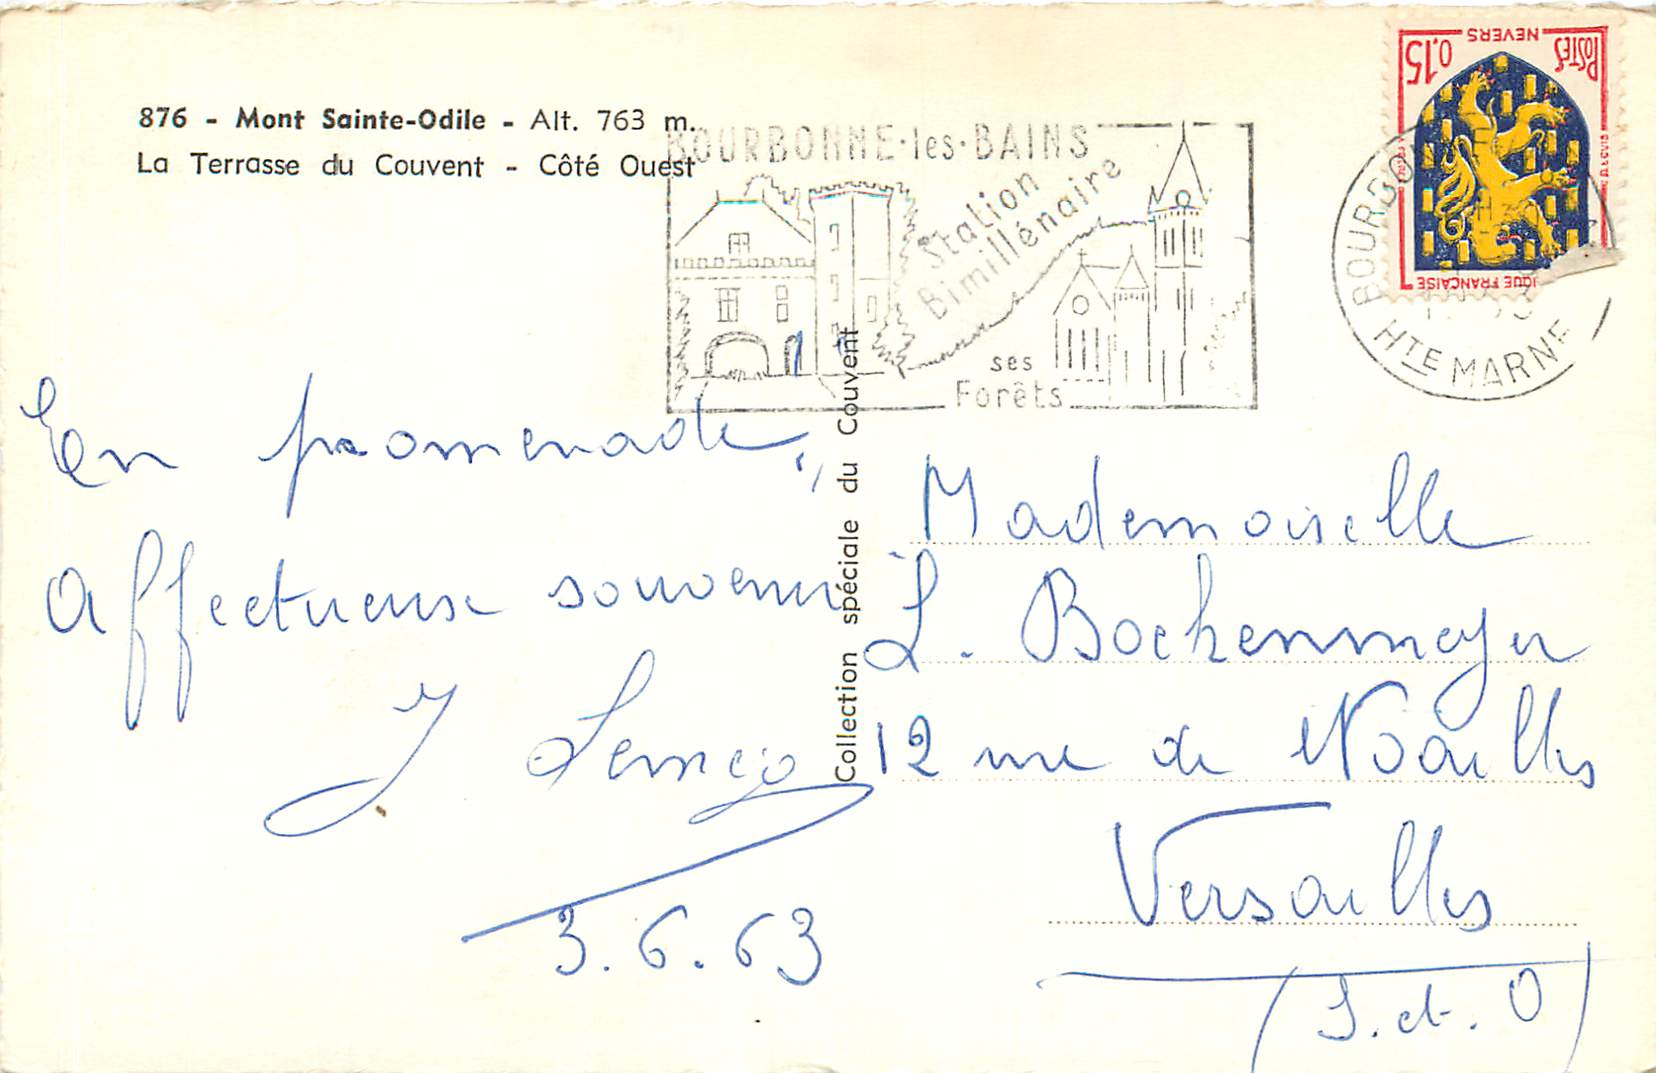 876 - Mont Sainte-Odile - Alt. 763 m.
La Terrasse du Couvent - Côté Ouest
BOURBONNE·les·BAINS
Station
Bimillénaire
ses
Forêts
POSTES
NEVERS
0,15
IQUE FRANÇAISE
BOURBO
HTE MARNE
Collection spéciale du Couvent
En promenade,
affectueux souvenir
J.
3.6.63
Mademoiselle
L. Bochenmeyer
12 rue de Noailles
Versailles
(S. et. O)